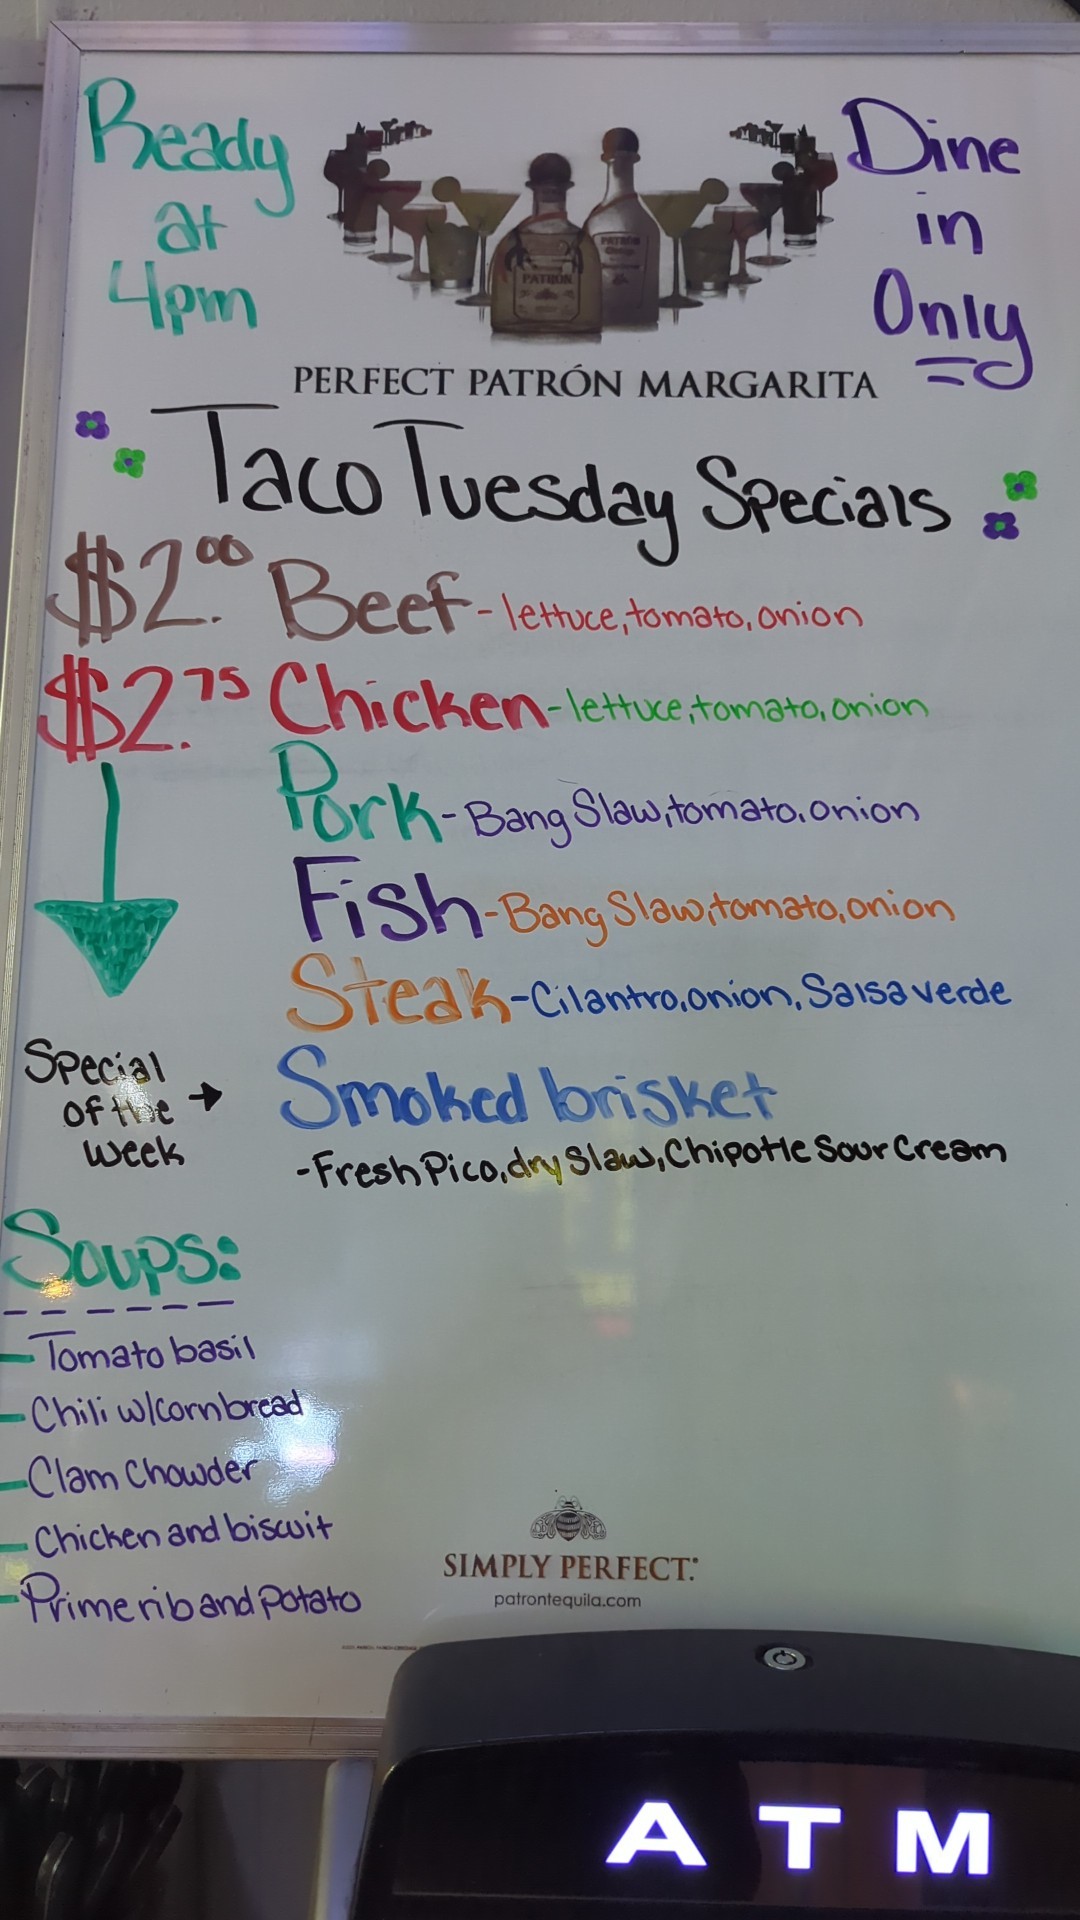 Ready
at
4pm
Dine
in
Only
PATRÓN
PERFECT PATRÓN MARGARITA
Taco Tuesday Specials
$2.00 Beef - lettuce, tomato, onion
$2.75 Chicken - lettuce, tomato, onion
Pork - Bang Slaw, tomato, onion
Fish - Bang Slaw, tomato, onion
Steak - Cilantro, onion, Salsa verde
Special
of the
week
Smoked brisket
- Fresh Pico, dry Slaw, Chipotle Sour Cream
Soups:
- Tomato basil
- Chili w/cornbread
- Clam Chowder
- Chicken and biscuit
- Prime rib and Potato
SIMPLY PERFECT.
patrontequila.com
ATM